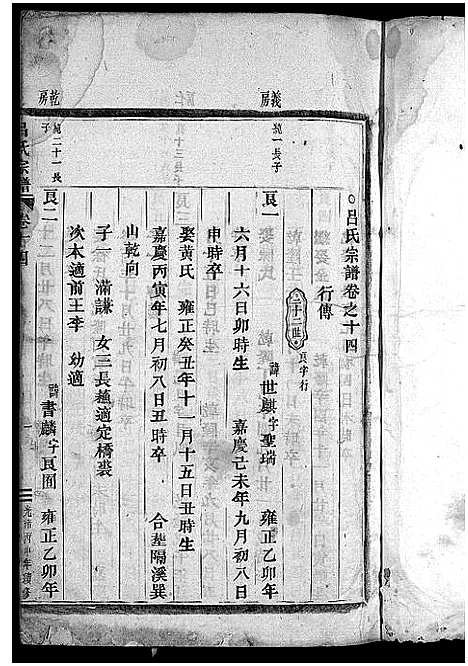 吕氏宗譜卷之十四
行傳
二十二世
良字行
義房
純一長子
良一
諱世麒字聖瑞
雍正乙卯年
六月十六日卯時生
嘉慶己未年九月初八日
申時卒
娶黃氏
雍正癸丑年十一月十五日丑時生
嘉慶丙寅年七月初八日丑時卒
合塟隔溪巽
山乾向
子一
滿謙
女三長
適定橋裘
次本適前王李
幼適
乾房
純二十一長子
良二
諱書麟字良圖
雍正乙卯年
吕氏宗譜
卷十四